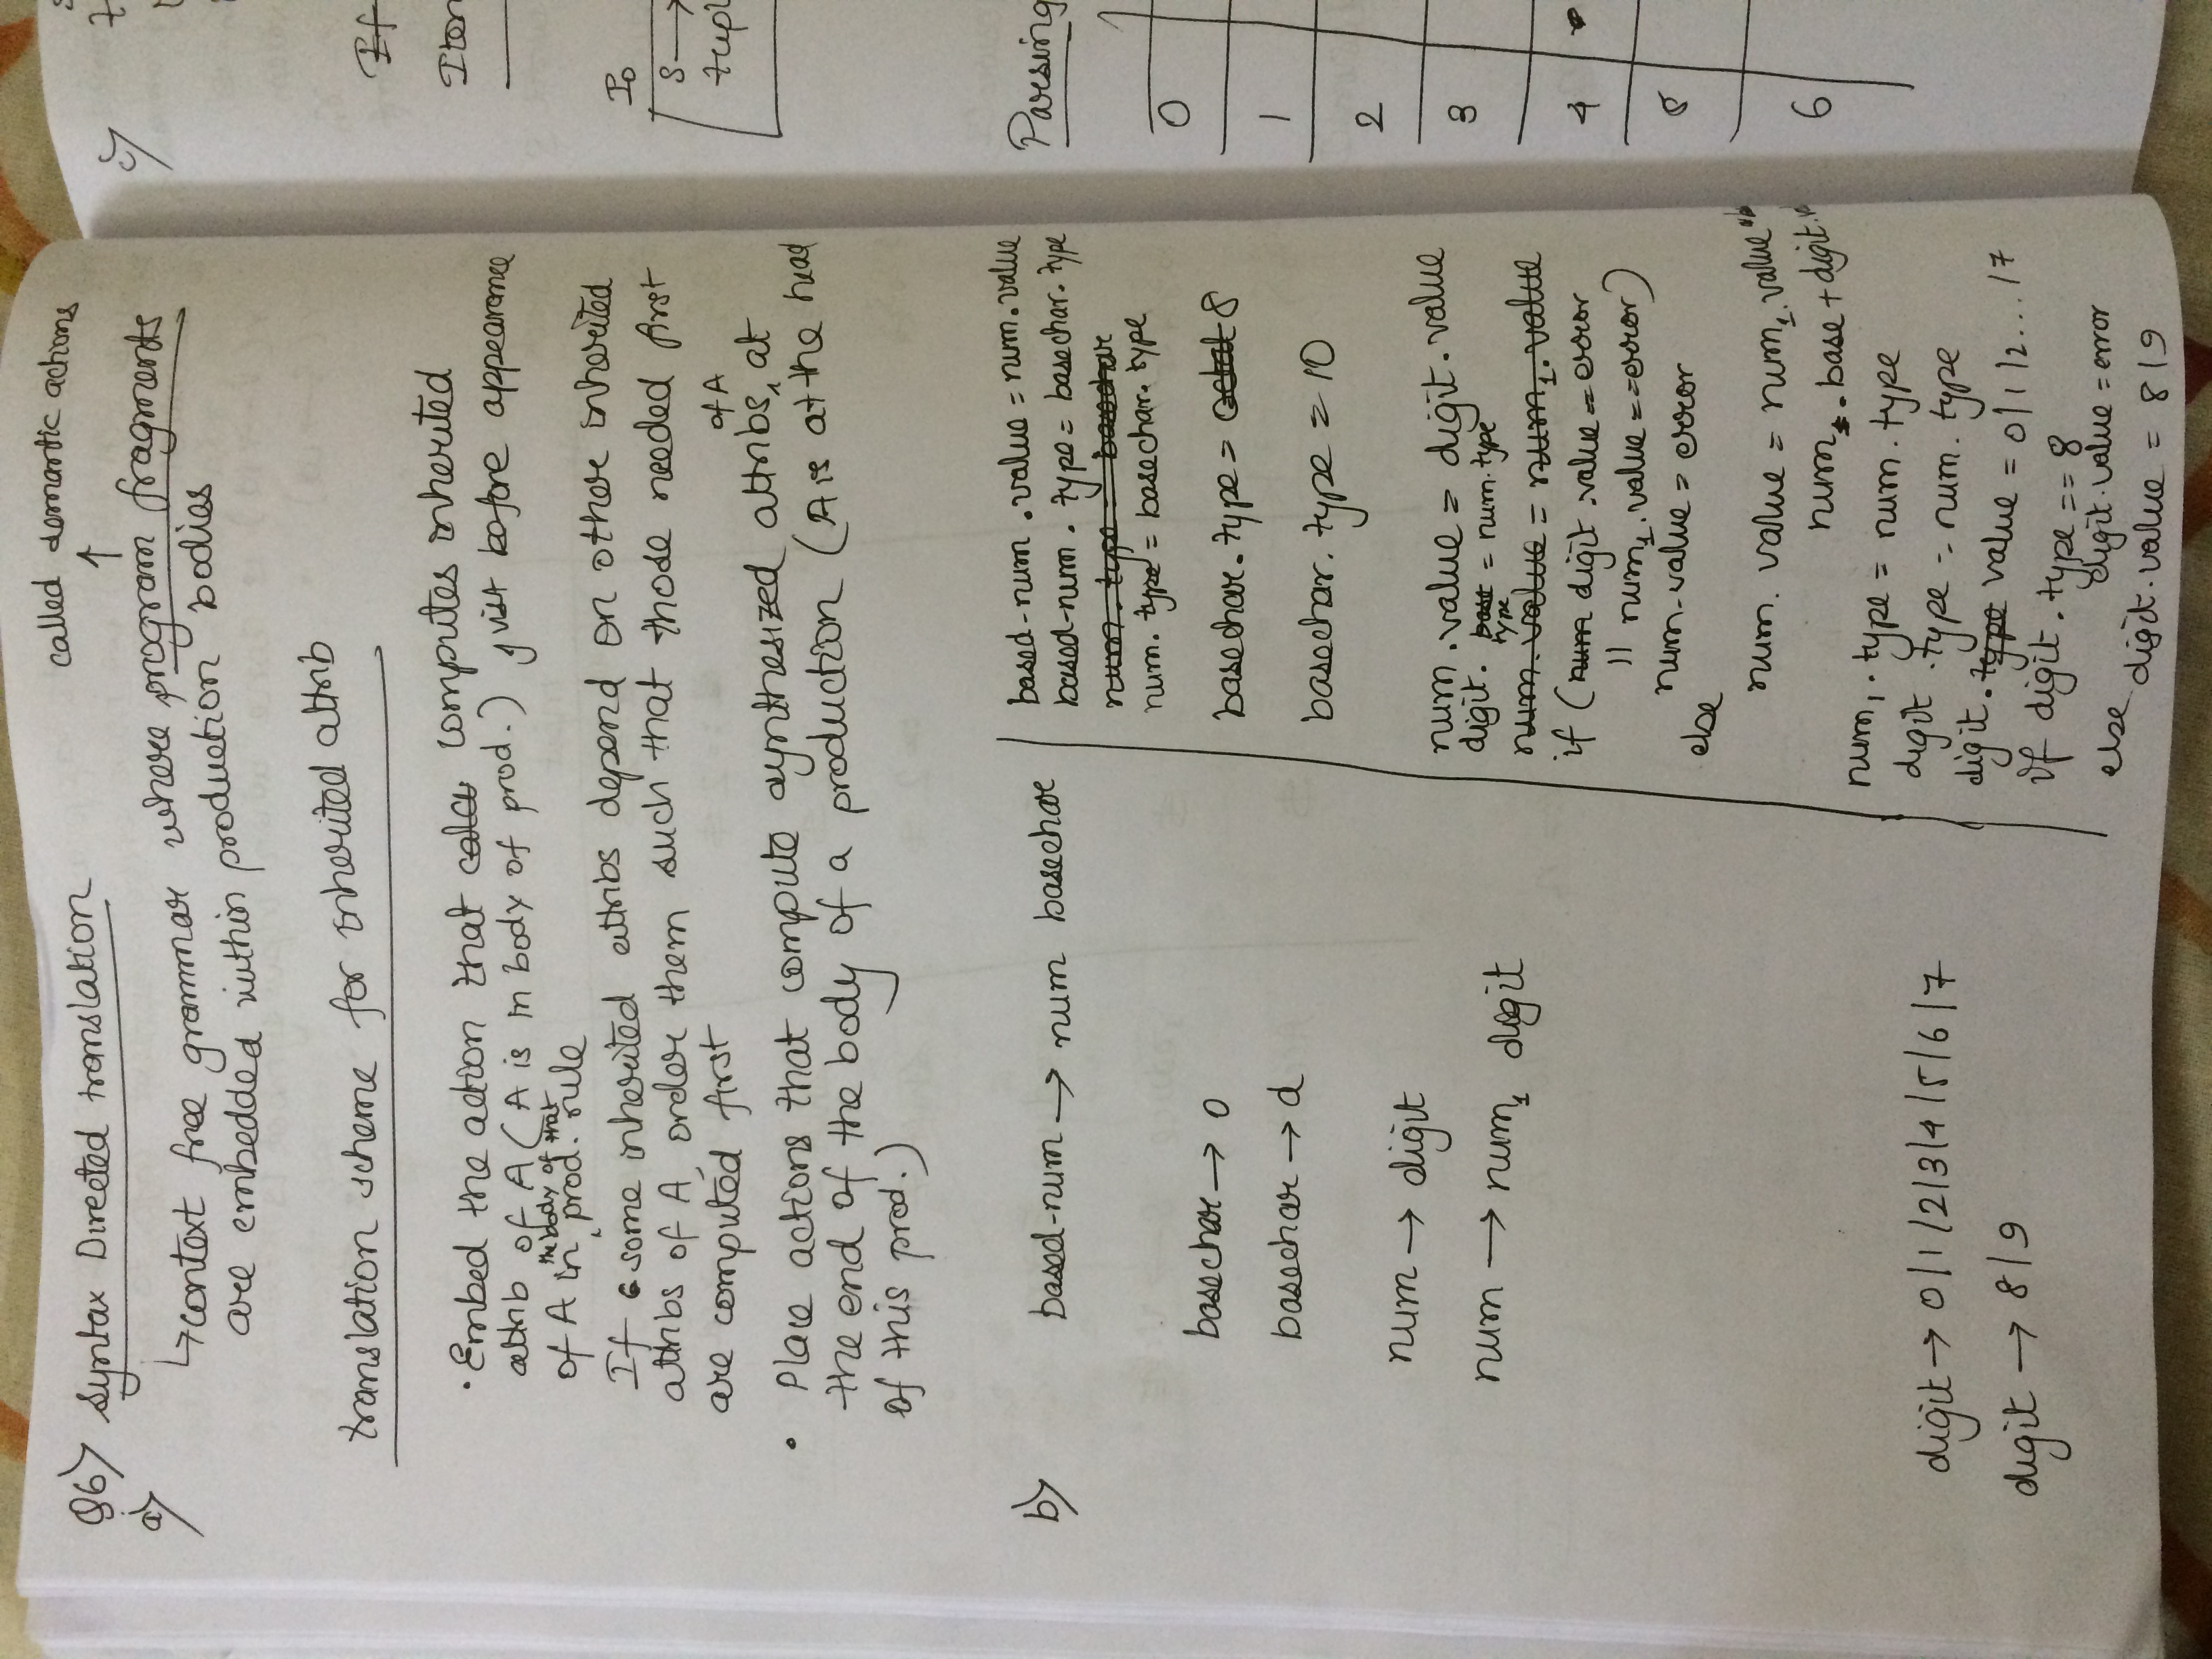 called semantic actions
↑
Q6) Syntax Directed translation
a)
↳ context free grammar where program fragments
are embedded within production bodies
translation scheme for inherited attrib
• Embed the action that computes inherited
attrib of A (A is in body of prod.) just before appearance
of A in the body of that prod. rule
If some inherited attribs depend on other inherited
attribs of A, order them such that those needed first
are computed first
• Place actions that compute synthesized attribs of A, at
the end of the body of a production (A is at the head
of this prod.)
b) based-num → num basechar
based-num.value = num.value
based-num.type = basechar.type
num.type = basechar
num.type = basechar.type
basechar → o
basechar.type = octal 8
basechar → d
basechar.type = 10
num → digit
num.value = digit.value
digit.base type = num.type
num → num1 digit
num.value = num1.value
if (num digit.value == error
|| num1.value == error)
num.value = error
else
num.value = num1.value *
num.base + digit.
num1.type = num.type
digit.type = num.type
digit → 0|1|2|3|4|5|6|7
digit.type value = 0|1|2...|7
digit → 8|9
if digit.type == 8
digit.value = error
else
digit.value = 8|9
c)
If
I0
S →
Parsing
0
1
2
3
4
6